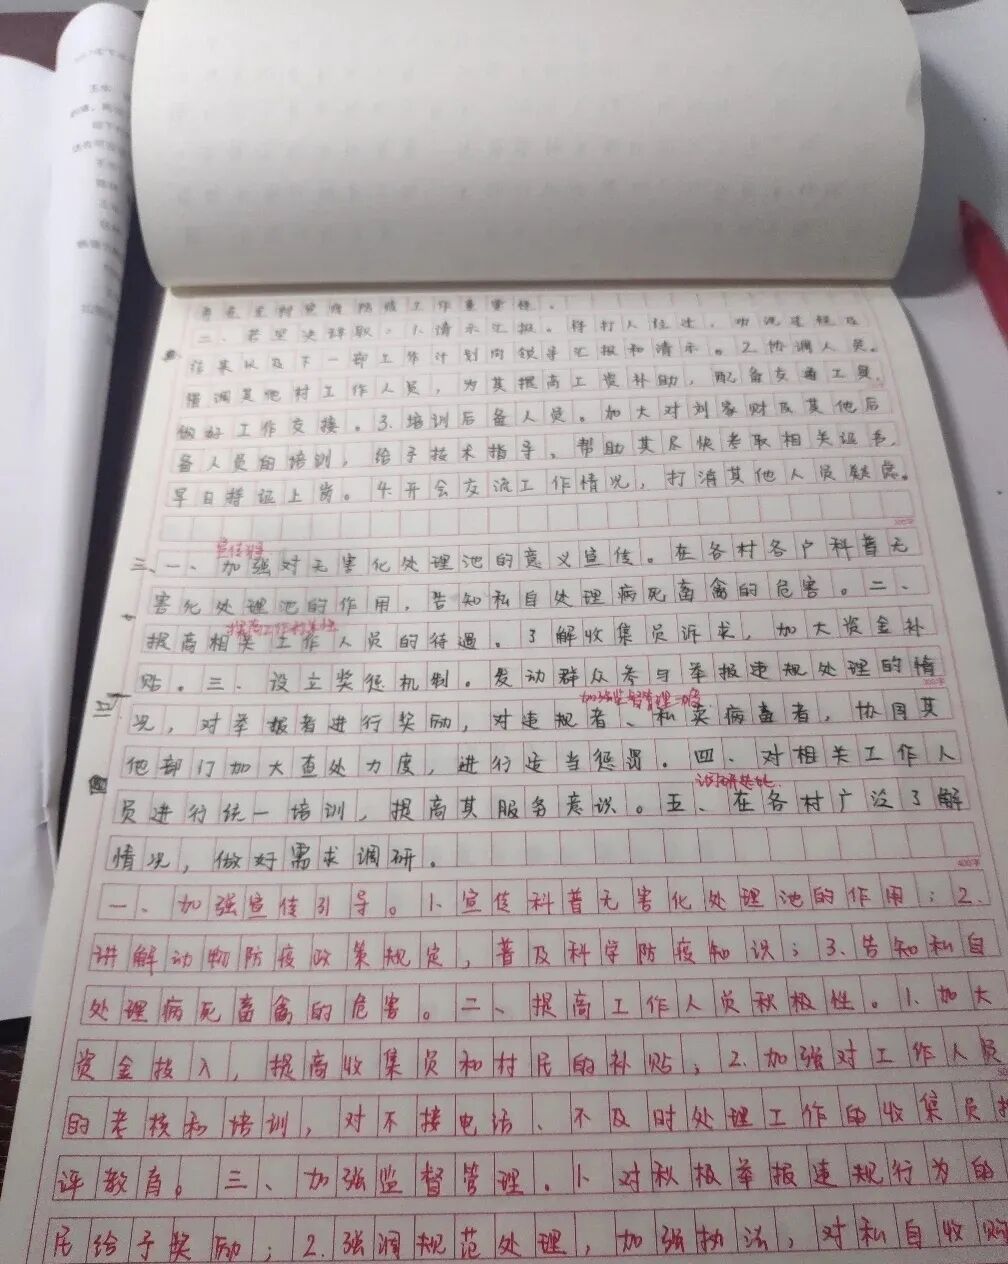 二、若坚决辞职：1.请示汇报。将打人经过、劝说过程及
结果以及下一部工作计划向领导汇报和请示。2.协调人员。
借调其他村工作人员，为其提高工资补助，配备交通工具，
做好工作交接。3.培训后备人员。加大对刘家财及其他后
备人员的培训，给予技术指导，帮助其尽快考取相关证书，
早日持证上岗。4.开会交流工作情况，打消其他人员疑虑。
宣传引导
三、一、加强对无害化处理池的意义宣传。在各村各户科普无
害化处理池的作用，告知私自处理病死畜禽的危害。二、
提高工作积极性
提高相关工作人员的待遇。了解收集员诉求，加大资金补
贴。三、设立奖惩机制。发动群众参与举报违规处理的情
加强监督管理
况，对举报者进行奖励，对违规者、私卖病畜者，协同其
他部门加大查处力度，进行适当惩罚。四、对相关工作人
员进行统一培训，提高其服务意识。五、在各村广泛了解
情况，做好需求调研。
一、加强宣传引导。1.宣传科普无害化处理池的作用；2.
讲解动物防疫政策规定，普及科学防疫知识；3.告知私自
处理病死畜禽的危害。二、提高工作人员积极性。1.加大
资金投入，提高收集员和村民的补贴；2.加强对工作人员
的考核和培训，对不接电话、不及时处理工作的收集员
评教育。三、加强监督管理。1.对积极举报违规行为的
民给予奖励；2.强调规范处理，加强执法，对私自收购